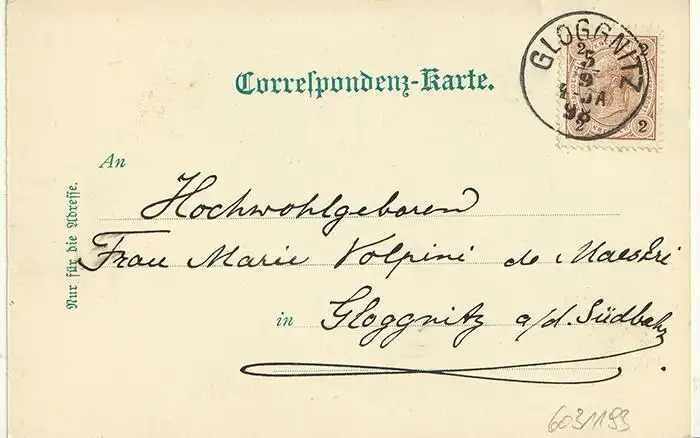 Correspondenz-Karte.
GLOGGNITZ
5
9
98
2 2
2 2
An
Hochwohlgeboren
Frau Marie Volpini de Maestri
in Gloggnitz a/d. Südbahn
Nur für die Adresse.
603/1193